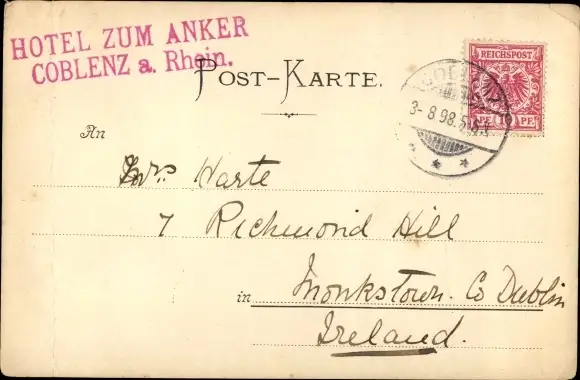 HOTEL ZUM ANKER
COBLENZ a. Rhein.
POST-KARTE.
REICHSPOST
PF. 10 PF.
3- 8 98. 5-
An
Mrs. Harte
7 Richmond Hill
in Monkstown. Co Dublin
Ireland.